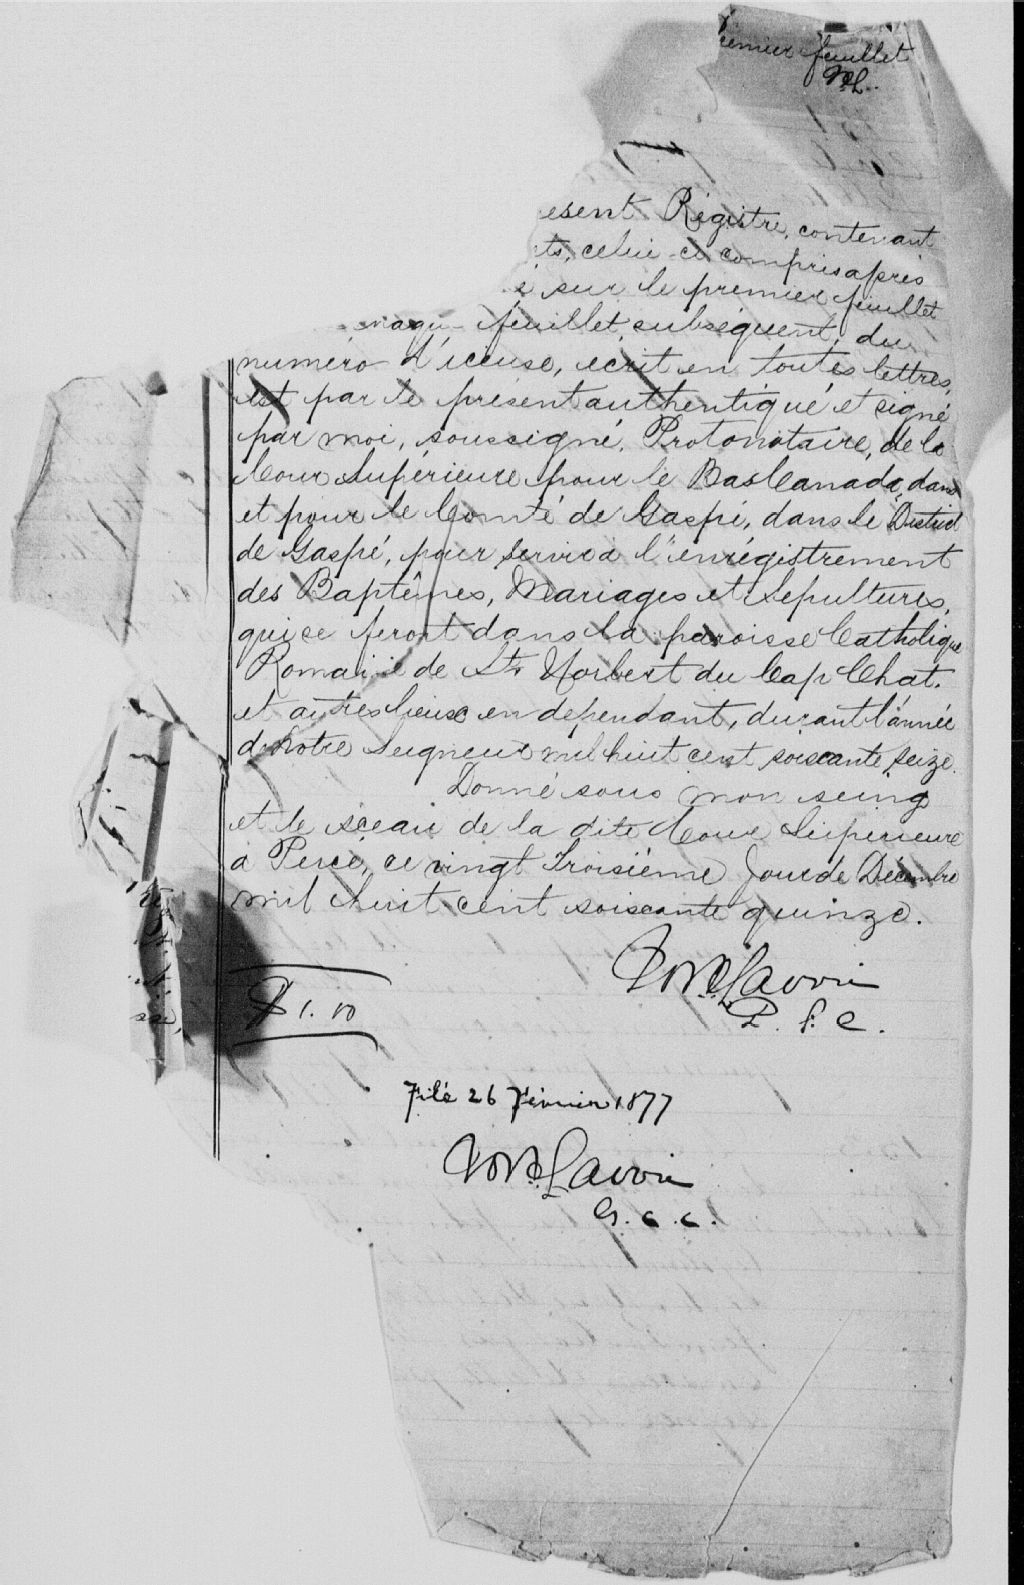 remier feuillet
ésent Régistre, contenant
ts, celui-ci compris après
é sur le premier feuillet
haque feuillet subséquent, du
numéro d'iceux, écrit en toutes lettres,
est par le présent authentiqué et signé
par moi, soussigné, Protonotaire, de la
Cour Supérieure pour le Bas Canada, dans
et pour le Comté de Gaspé, dans le District
de Gaspé, pour servir à l'enrégistrement
des Baptêmes, Mariages et Sépultures,
qui se feront dans la paroisse Catholique
Romaine de St. Norbert du Cap Chat.
et autres lieux en dépendant, durant l'année
de Notre Seigneur mil huit cent soixante seize.
Donné sous mon seing
et le sceau de la dite Cour Supérieure
à Percé, ce vingt troisième Jour de Décembre
mil huit cent soixante quinze.
Lavoie
P. S. C.
$ 1.10
Filé 26 Février 1877
Lavoie
G. C. C.